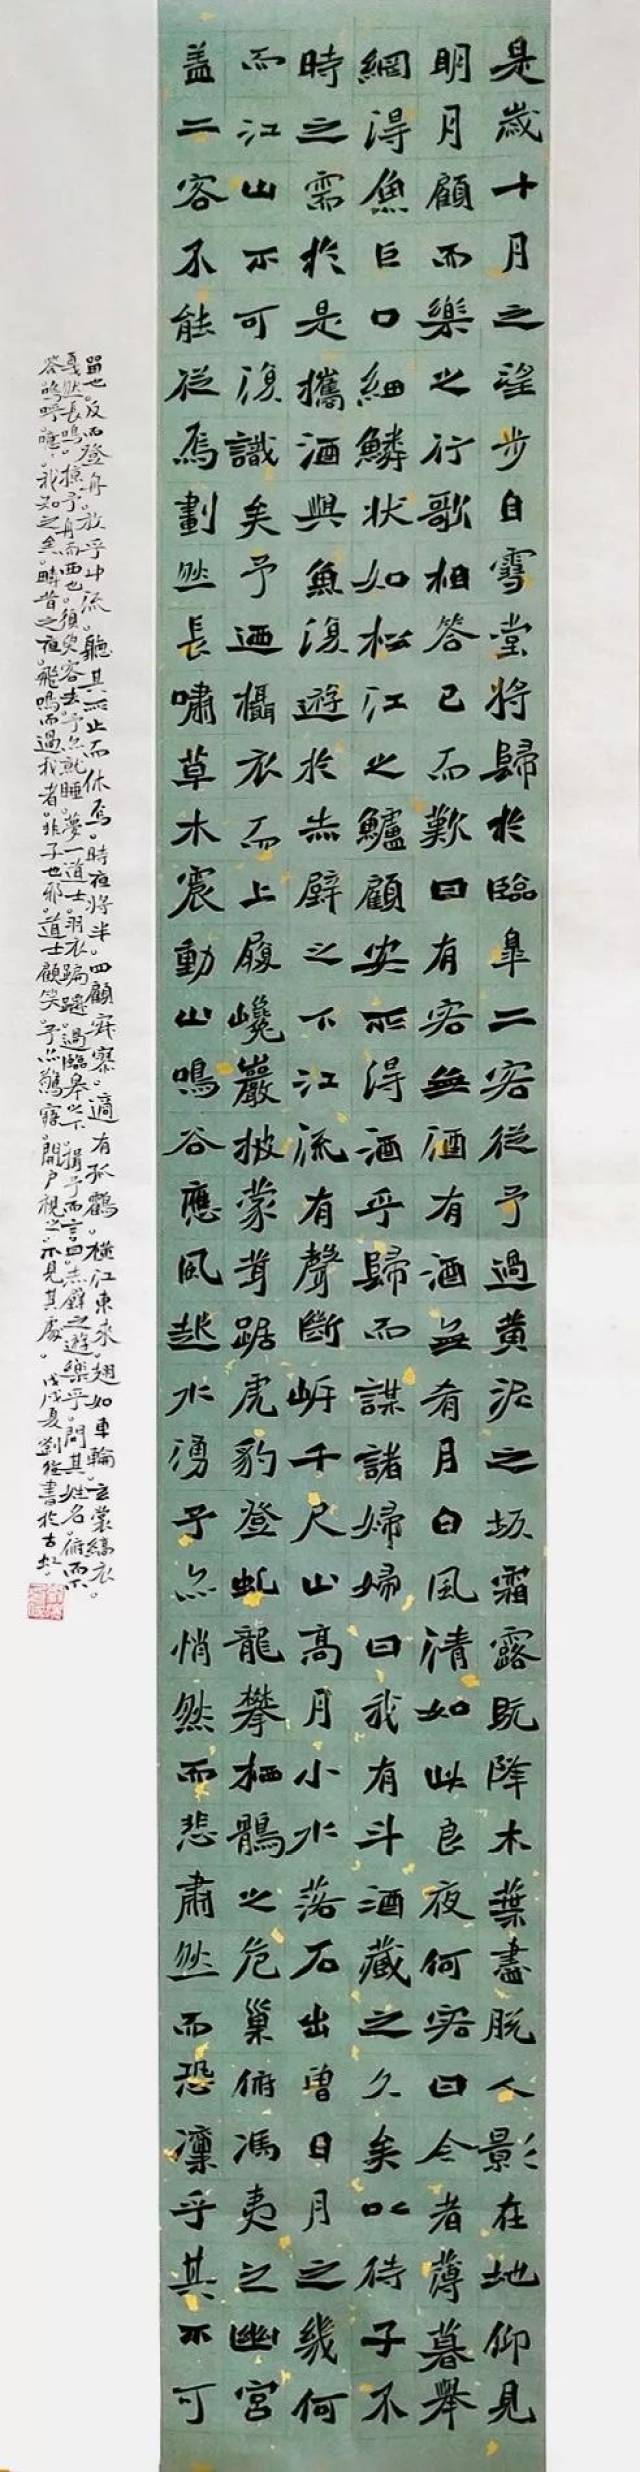 是歲十月之望步自雪堂將歸於臨皐二客從予過黄泥之坂霜露既降木葉盡脱人影在地仰見
明月顧而樂之行歌相答已而歎曰有客無酒有酒無肴月白風清如此良夜何客曰今者薄暮舉
網得魚巨口細鱗狀如松江之鱸顧安所得酒乎歸而謀諸婦婦曰我有斗酒藏之久矣以待子不
時之需於是攜酒與魚復遊於赤壁之下江流有聲斷岸千尺山高月小水落石出曾日月之幾何
而江山不可復識矣予迺攝衣而上履巉巖披蒙茸踞虎豹登虬龍攀栖鶻之危巢俯馮夷之幽宮
盖二客不能從焉劃然長嘯草木震動山鳴谷應風起水湧予亦悄然而悲肅然而恐凜乎其不可
留也。反而登舟。放乎中流。聽其所止而休焉。時夜將半。四顧寂寥。適有孤鶴。橫江東來。翅如車輪。玄裳縞衣。
戛然長鳴。掠予舟而西也。須臾客去。予亦就睡。夢一道士。羽衣蹁躚。過臨皋之下。揖予而言曰。赤壁之遊樂乎。問其姓名。俯而不
答。嗚呼噫。我知之矣。疇昔之夜。飛鳴而過我者。非子也邪。道士顧笑。予亦驚寤。開戶視之。不見其處。戊戌夏劉書於古